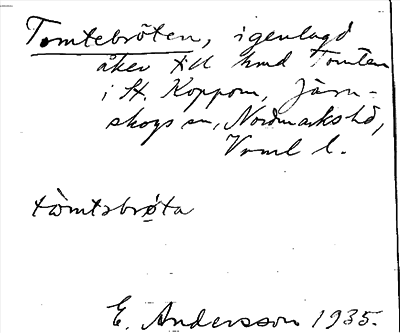 Tomtebröten, igenlagd
åker till hmd Tomten
i St. Koppom, Järn-
skogs sn, Nordmarks hd,
Vrml l.
tòmtəbrø̀ta
E. Andersson 1935.